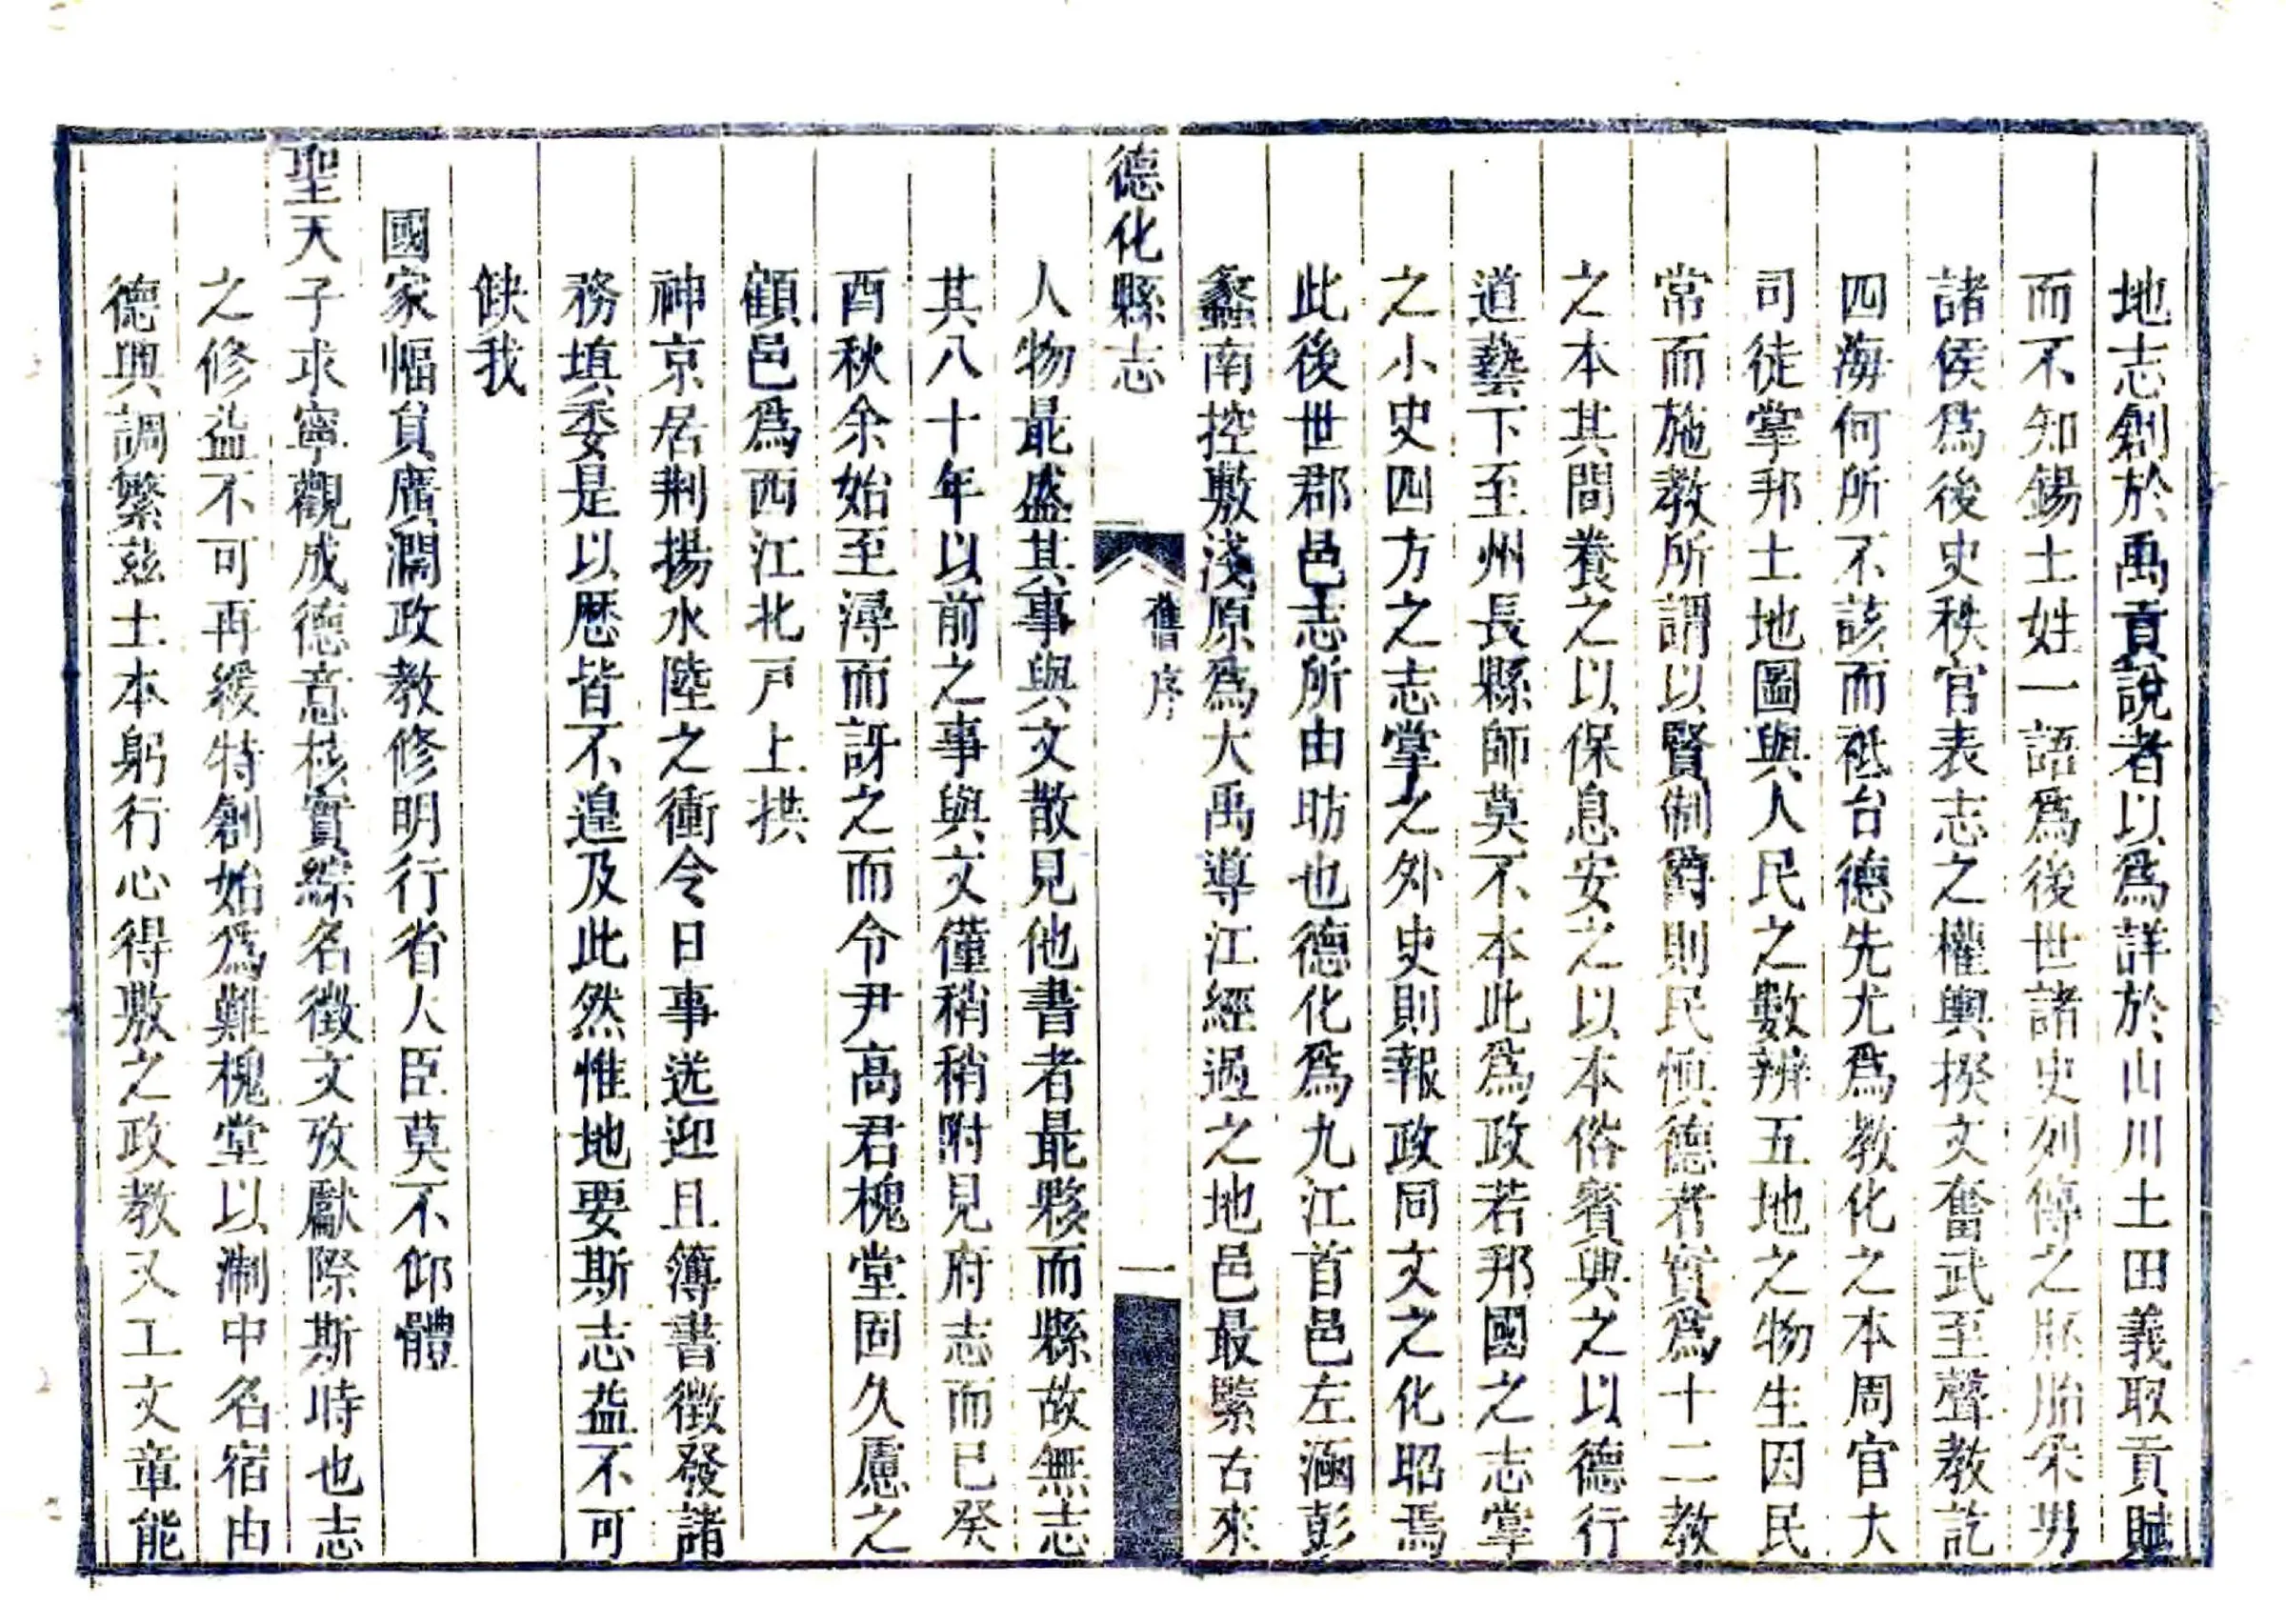 地志創於禹貢說者以爲詳於山川土田義取貢賦
而不知錫土姓一語爲後世諸史列傳之胚胎采男
諸侯爲後史秩官表志之權輿揆文奮武至聲教訖
四海何所不該而祗台德先尤爲教化之本周官大
司徒掌邦土地圖與人民之數辨五地之物生因民
常而施教所謂以賢制爵則民慎德者實爲十二教
之本其間養之以保息安之以本俗賓興之以德行
道藝下至州長縣師莫不本此爲政若邦國之志掌
之小史四方之志掌之外史則報政同文之化昭焉
此後世郡邑志所由昉也德化爲九江首邑左涵彭
蠡南控敷淺原爲大禹導江經過之地邑最緊古來
德化縣志
舊序
一
人物最盛其事與文散見他書者最夥而縣故無志
其八十年以前之事與文僅稍稍附見府志而已癸
酉秋余始至潯而訝之而令尹高君槐堂固久慮之
顧邑爲西江北戸上拱
神京居荆揚水陸之衝令日事送迎且簿書徵發諸
務填委是以歷皆不遑及此然惟地要斯志益不可
缺我
國家幅員廣濶政教修明行省人臣莫不仰體
聖天子求寧觀成德意核實綜名徵文攷獻際斯時也志
之修益不可再緩特創始爲難槐堂以淛中名宿由
德興調繁玆土本躬行心得敷之政教又工文章能